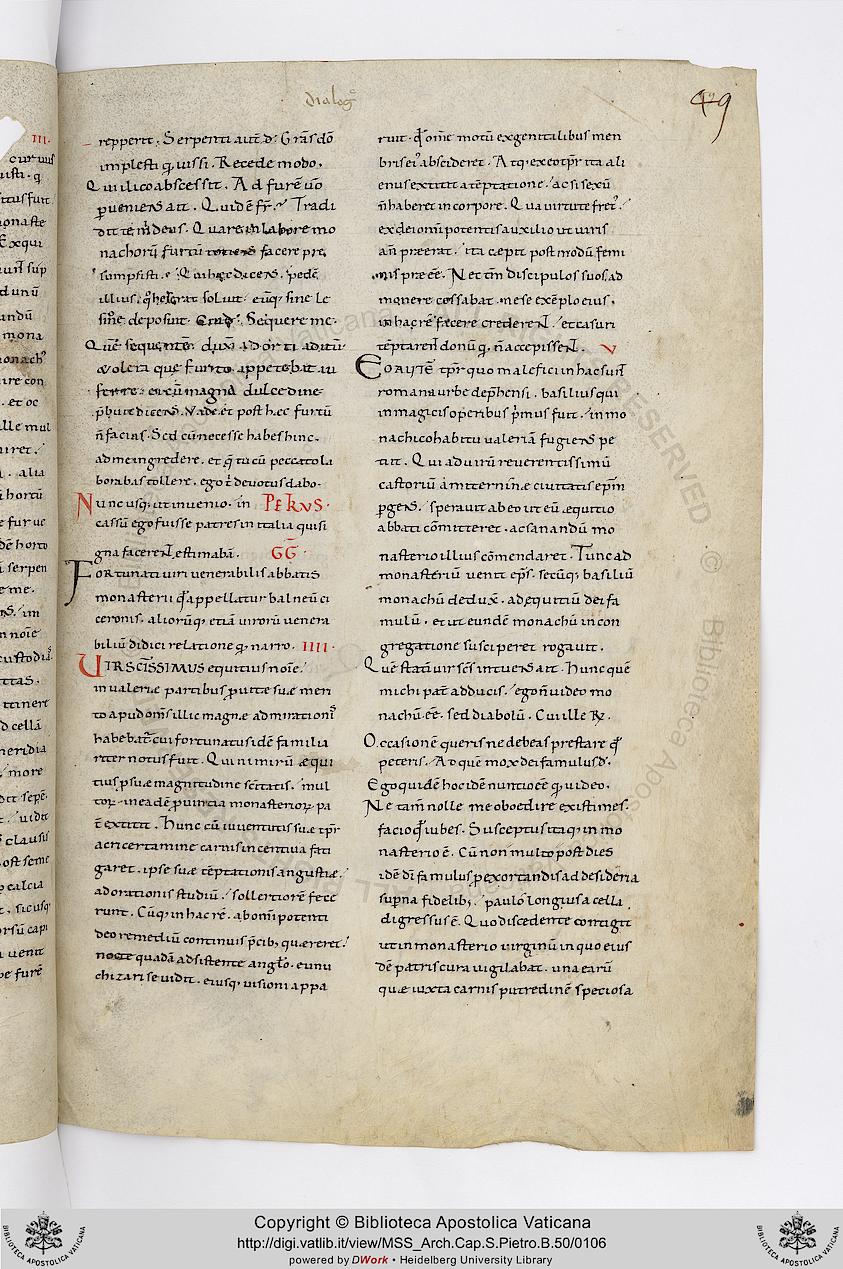 dialogᵒ
49
repperit. Serpenti aut̄ d̄. Gr̄as do
implesti q; iussi. Recede modo.
Qui ilico abscessit. Ad furē u̅o
ꝑueniens ait. Quid ē fr̄. Tradi
dit te m̄ deus. Quare in labore mo
nachorū furtū facere pre
sumpsisti. Qui hęc dicens. pedē
illius. soluit. eūq; sine le
sione deposuit. Cui d̄. Sequere me.
Quē sequentē duxit ad orti aditū
& olera quę furto appetebat au
ferre. ei cū magna dulcedine
p̄buit dicens. Vade. et post hęc furtū
n̄ facias. Sed cū necesse habes hinc.
ad me ingredere. et q̄ tu cū peccato la
borabas tollere. ego t̄ deuotus dabo.
Nunc usq; ut inuenio. in PETRVS.
cassū ego fuisse patres in italia qui si
gna facerent estimabā. GḠ.
Fortunati uiri uenerabilis abbatis
monasterii qđ appellatur balneū ci
ceronis. aliorūq; etiā uirorū uenera
biliū didici relatione q; narro. IIII.
VIR SC̄ISSIMUS equitius noīe.
in ualeriæ partibus ꝓ uite suæ meri
to apud om̄s illic magnæ admirationis
habebatr̄. cui fortunatus idē familia
riter notus fuit. Qui nimirū æqui
tius ꝓ suæ magnitudine sc̄itatis. mul
torꝝ in eadē ꝓuincia monasteriorꝝ pa
t̄ extitit. Hunc cū iuuentutis suæ tp̄r
acri certamine carnis incentiua fati
garet. ipse suæ tēptationis angustiæ.
ad orationis studiū. sollertiorē fece
runt. Cūq; in hac rē. ab om̄ipotenti
deo remediū continuis p̄cib; quereret.
nocte quadā adsistente angl̄o. eunu
chizari se uidit. eiusq; uisioni appa
ruit. qđ om̄e motū ex genitalibus men
bris ei̓ abscideret. Atq; ex eo tp̄r ita ali
enus extitit a tēptatione. ac si sexū
n̄ haberet in corpore. Qua uirtute fret̓.
ex dei om̄ipotentis auxilio ut uiris
an̄ preerat. ita cępit post modū femi
nis præēē. Nec tm̄ discipulos suos ad
monere cessabat. ne se exēplo eius.
in hac rē facere crederent. et casuri
tēptarent donū q; n̄ accepissent. V
EO AUTĒ tp̄r quo malefici in hac sunt
romana urbe dep̄hensi. basilius qui
in magicis operibus p̄mus fuit. in mo
nachico habitu ualeriā fugiens pe
tiit. Qui ad uirū reuerentissimū
castoriū amiterninæ ciuitatis ep̄m
ꝑgens. sperauit ab eo ut eū æquitio
abbati cōmitteret. ac sanandū mo
nasterio illius cōmendaret. Tunc ad
monasteriū uenit ep̄s. secūq; basiliū
monachū deduxit. ad equitiū dei fa
mulū. et ut eundē monachū in con
gregatione susciperet rogauit.
Quē statī uir sc̄s intuens ait. Hunc quē
michi pat̄ adducis. ego n̄ video mo
nachū ēē. sed diabolū. Cui ille R̄.
Occasionē queris ne debeas prestare qđ
peteris. Ad quē mox dei famulus d̄.
Ego quidē hoc idē nuntio ēē q; uideo.
Ne tam̄ nolle me oboedire existimes.
facio qđ iubes. Susceptus itaq; in mo
nasterio ē. Cū non multo post dies
idē dī famulus ꝓ exortandis ad desideria
sup̄na fidelib;. paulo longius a cella
digressus ē. Quo discedente contigit
ut in monasterio uirginū in quo eius
dē patris cura uigilabat. una earū
quæ iuxta carnis putredinē speciosa
Copyright © Biblioteca Apostolica Vaticana
http://digi.vatlib.it/view/MSS_Arch.Cap.S.Pietro.B.50/0106
powered by DWork • Heidelberg University Library